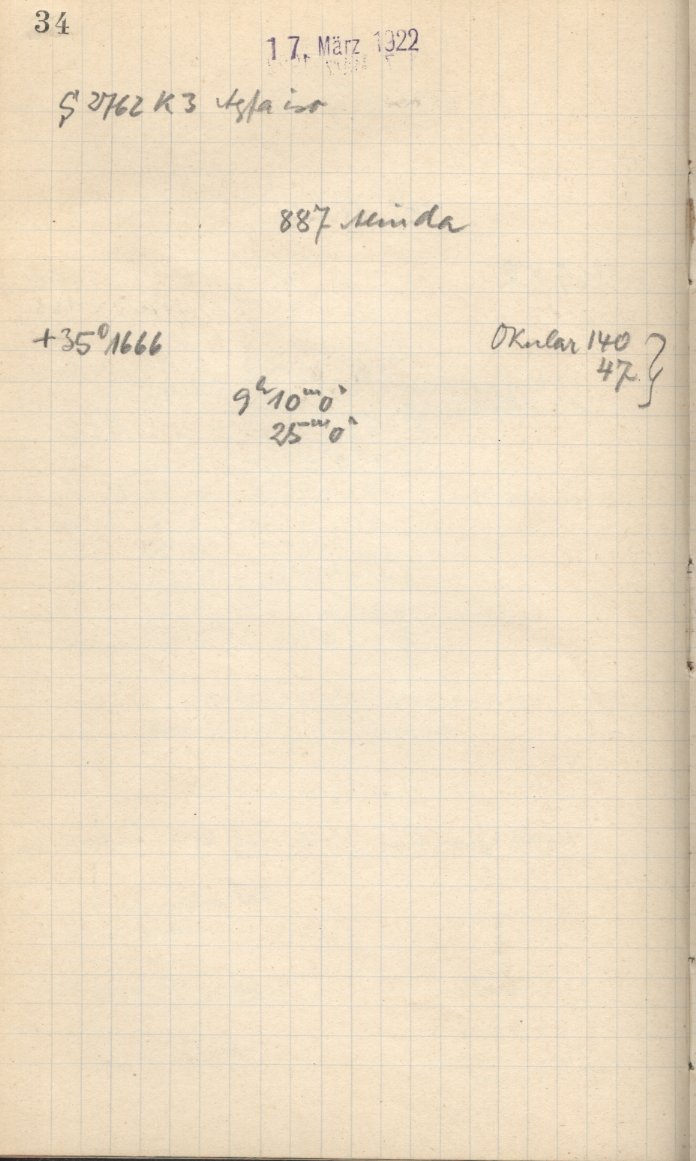 34
17. März 1922
G 2762 K3 Agfa iso
887 Alinda
+35° 1666
Okular 140
47 }
9ʰ 10ᵐ 0ˢ
25ᵐ 0ˢ